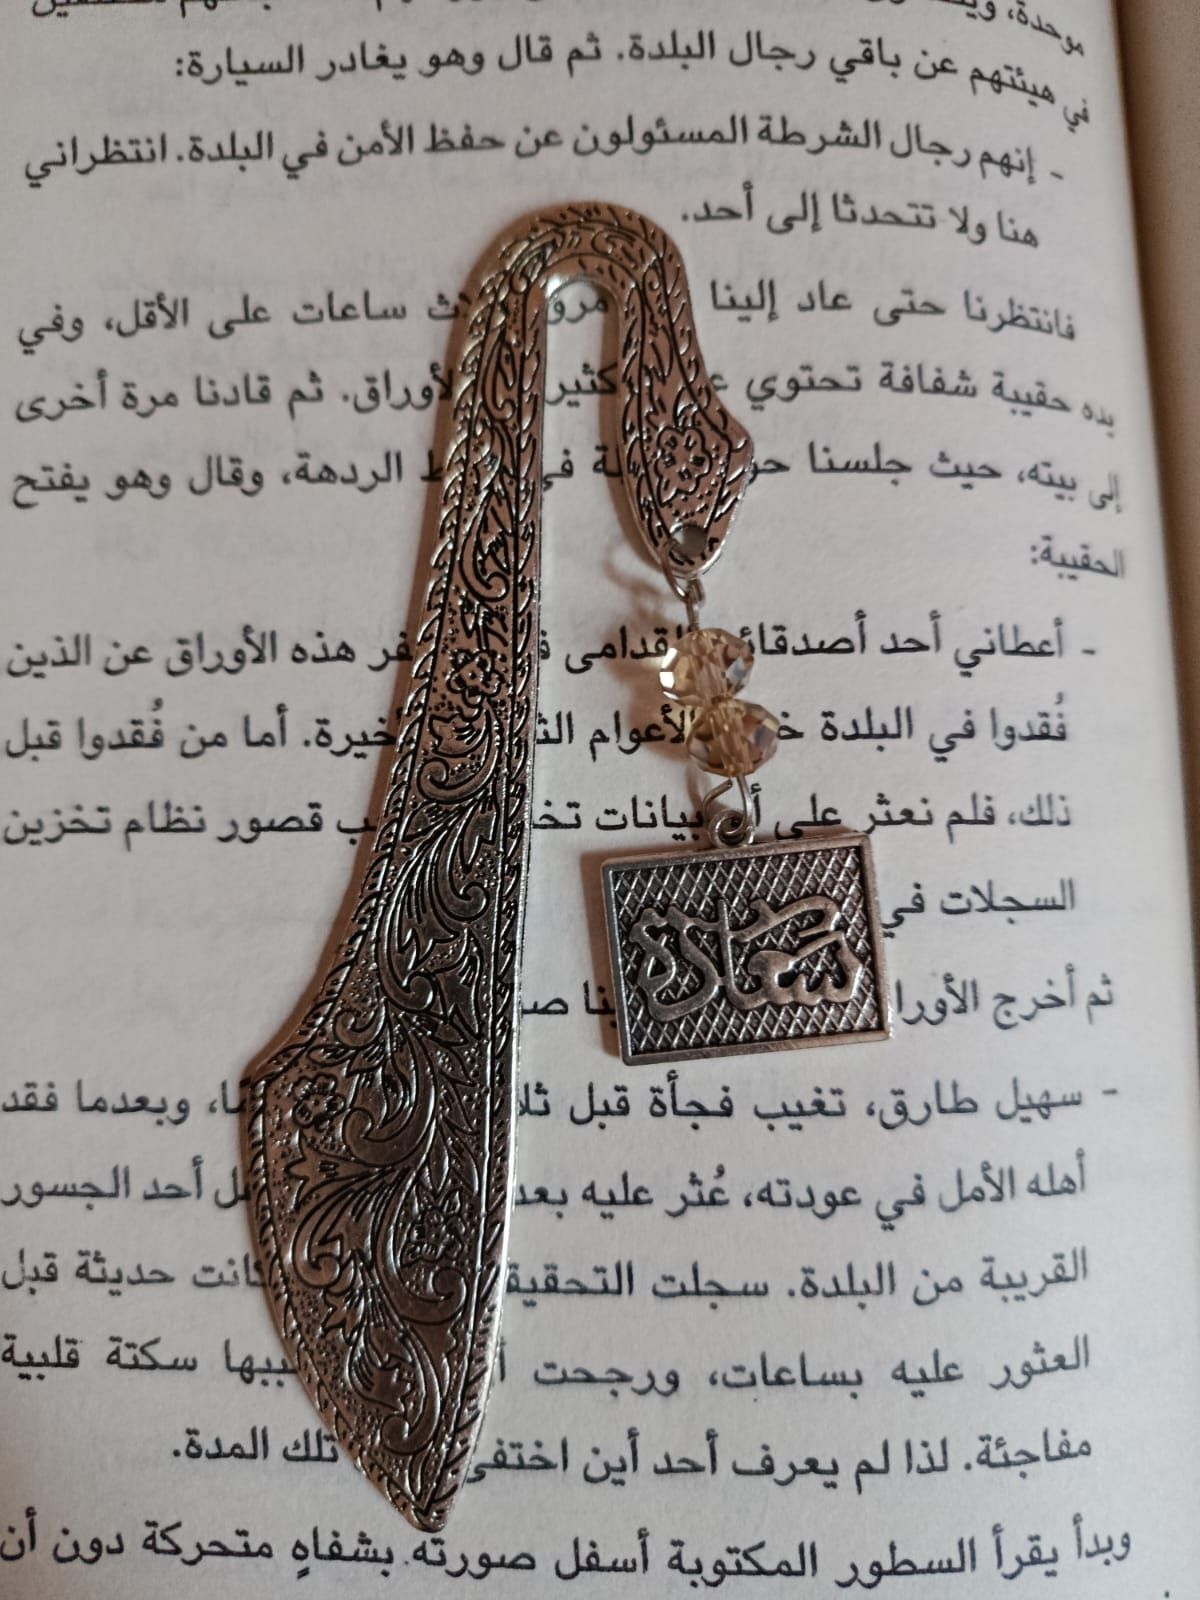 موحدة،
في هيئتهم عن باقي رجال البلدة. ثم قال وهو يغادر السيارة:
- إنهم رجال الشرطة المسئولون عن حفظ الأمن في البلدة. انتظراني
هنا ولا تتحدثا إلى أحد.
فانتظرنا حتى عاد إلينا ساعات على الأقل، وفي
يده حقيبة شفافة تحتوي الأوراق. ثم قادنا مرة أخرى
إلى بيته، حيث جلسنا الردهة، وقال وهو يفتح
الحقيبة:
- أعطاني أحد القدامى هذه الأوراق عن الذين
فُقدوا في البلدة الأعوام الأخيرة. أما من فُقدوا قبل
ذلك، فلم نعثر على بيانات قصور نظام تخزين
السجلات في
سعادة
ثم أخرج
- سهيل طارق، تغيب فجأة قبل وبعدما فقد
أهله الأمل في عودته، عُثر عليه أحد الجسور
القريبة من البلدة. سجلت كانت حديثة قبل
العثور عليه بساعات، ورجحت سكتة قلبية
مفاجئة. لذا لم يعرف أحد أين اختفى تلك المدة.
وبدأ يقرأ السطور المكتوبة أسفل صورته بشفاهٍ متحركة دون أن